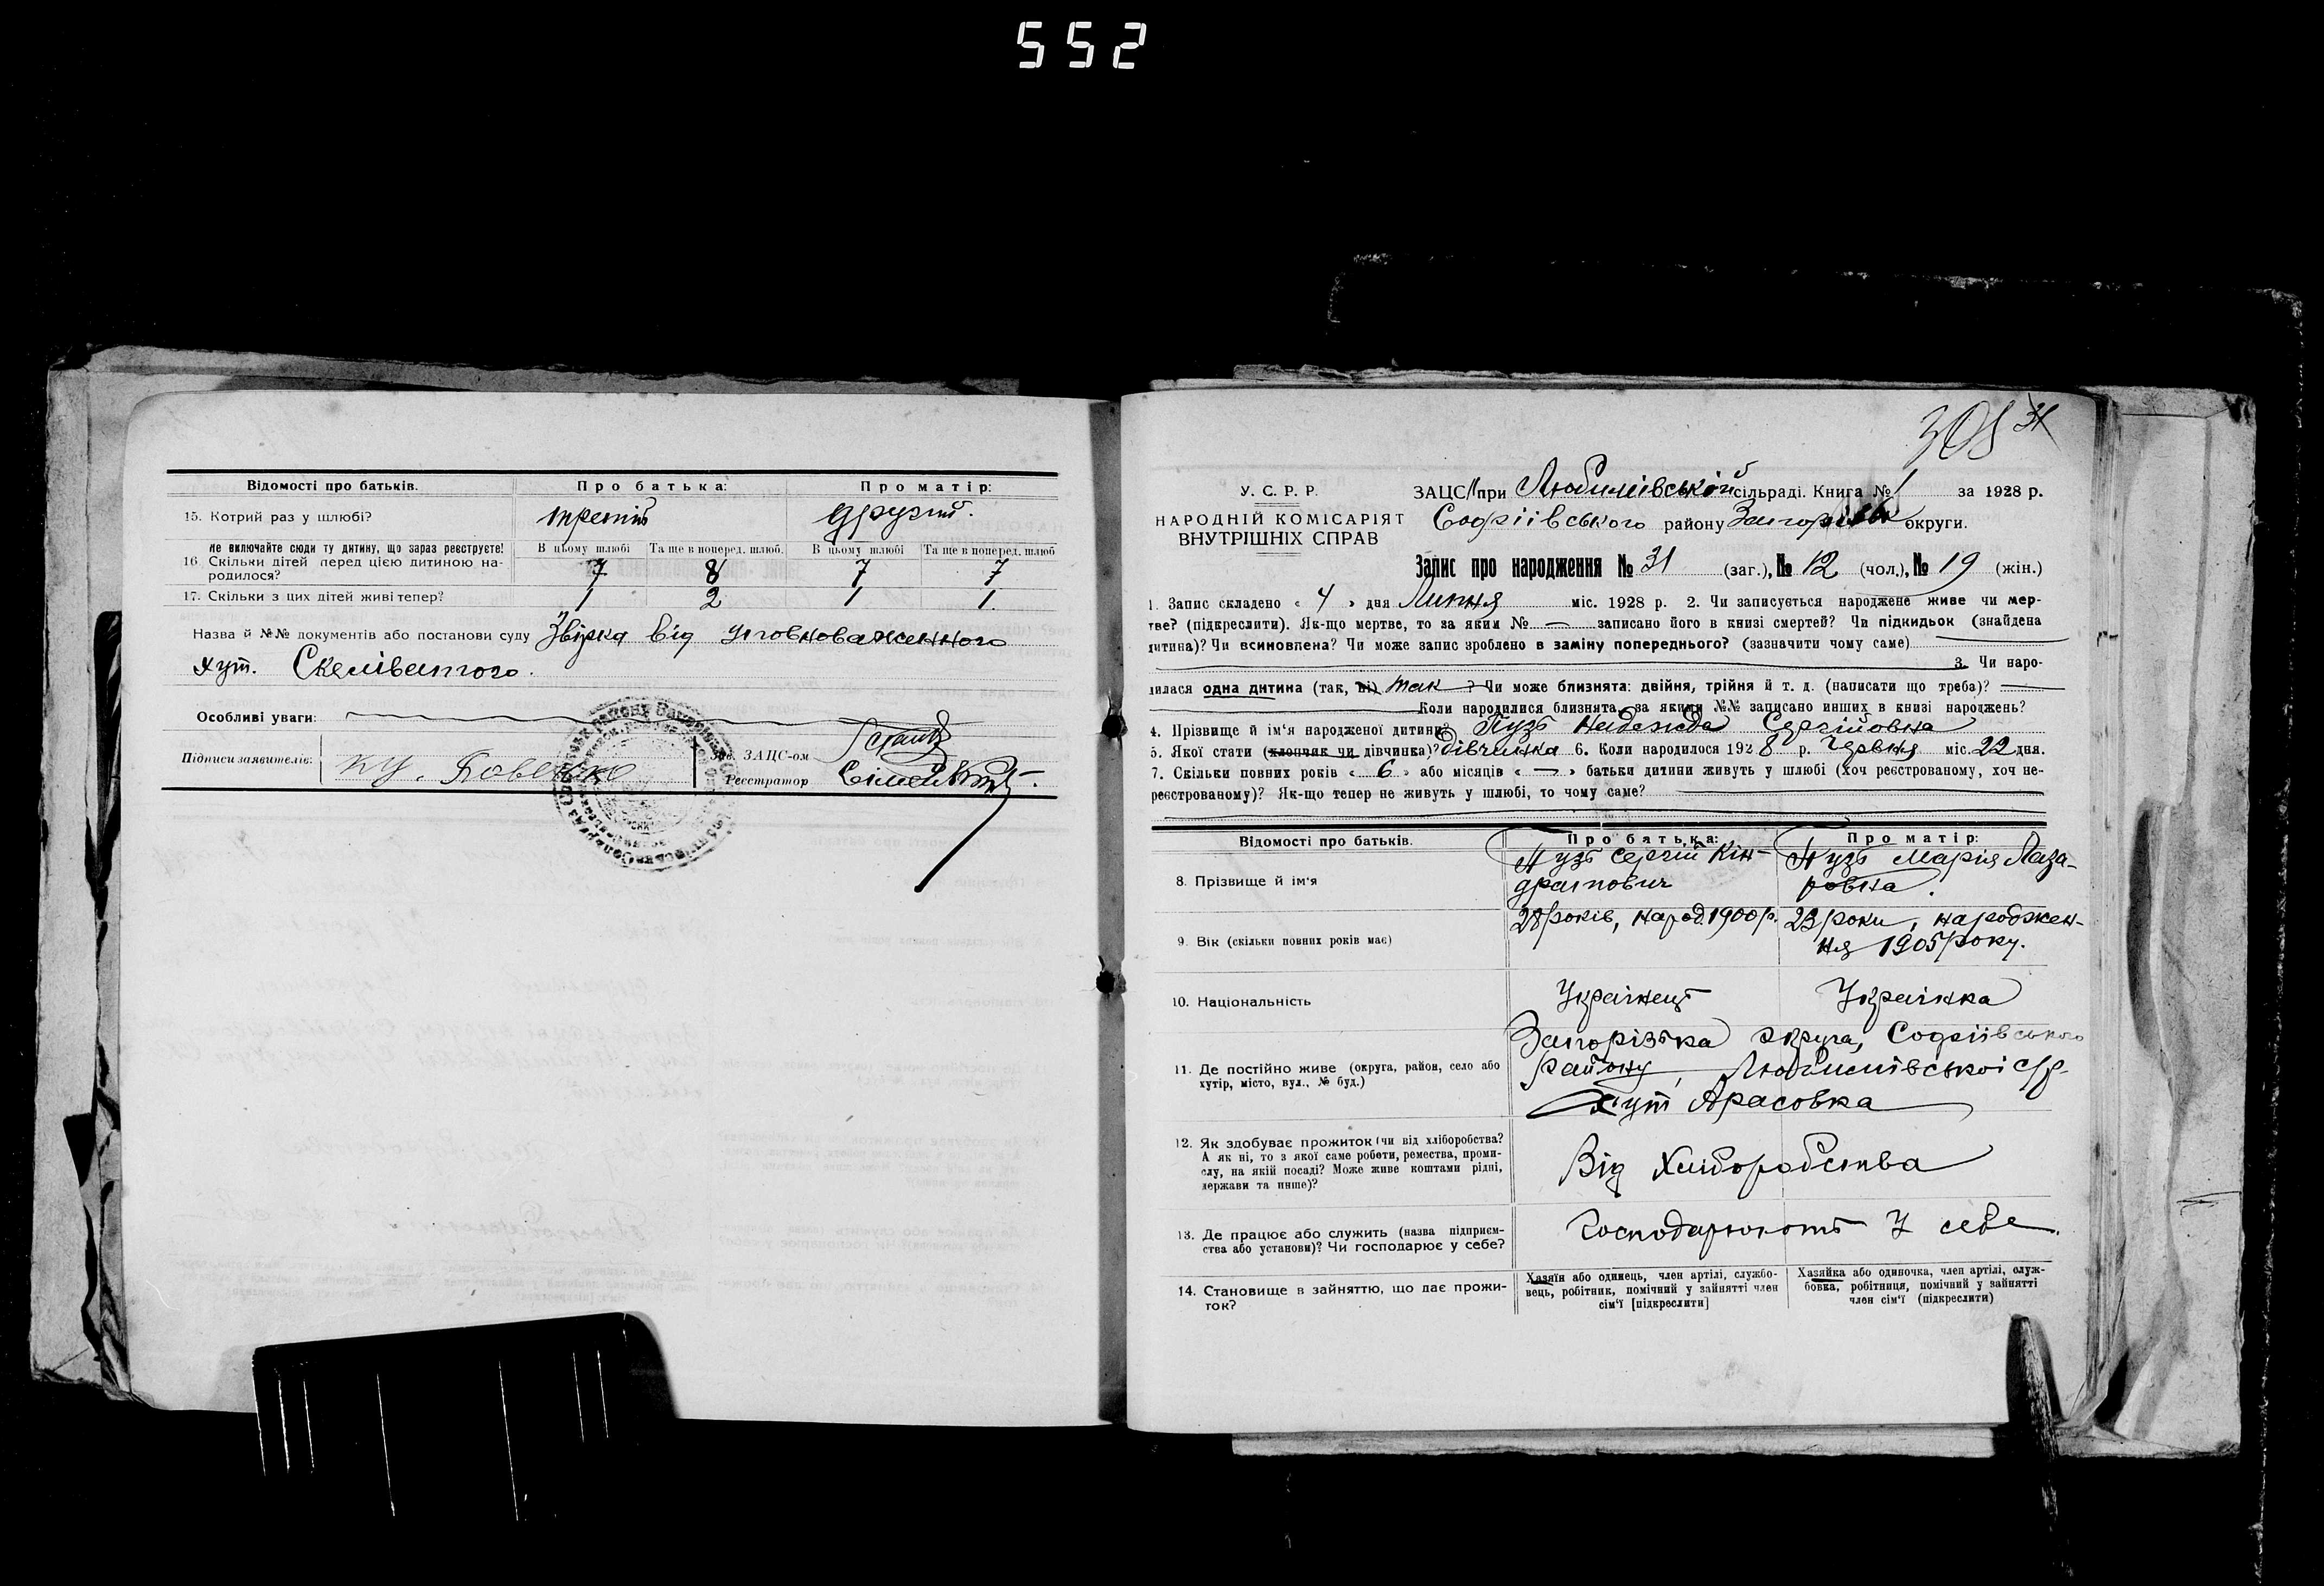 552
Відомості про батьків. Про батька: Про матір:
15. Котрий раз у шлюбі? третій другий.
Не включайте сюди ту дитину, що зараз реєструєте! В цьому шлюбі Та ще в поперед. шлюб. В цьому шлюбі Та ще в поперед. шлюб
16. Скільки дітей перед цією дитиною народилося? 7 8 7 7
17. Скільки з цих дітей живі тепер? 1 2 1 1.
Назва й №№ документів або постанови суду Звірка від уповноваженного
хут. Скелюватого.
Особливі уваги:
Підписи заявителів: Зав. ЗАЦС-ом
Реєстратор
308 31
У. С. Р. Р.
НАРОДНІЙ КОМІСАРІЯТ
ВНУТРІШНІХ СПРАВ
ЗАЦС при Любимівській сільраді. Книга № 1 за 1928 р.
Софіївського району Запорізьк округи.
Запис про народження № 31 (заг.), № 12 (чол.), № 19 (жін.)
1. Запис складено « 4 » дня Липня міс. 1928 р. 2. Чи записується народжене живе чи мер-
тве? (підкреслити). Як-що мертве, то за яким № — записано його в книзі смертей? Чи підкидьок (знайдена
дитина)? Чи всиновлена? Чи може запис зроблено в заміну попереднього? (зазначити чому саме)
3. Чи наро-
дилася одна дитина (так, ні) так ? Чи може близнята: двійня, трійня й т. д. (написати що треба)? —
Коли народилися близнята, за якими №№ записано инших в книзі народжень?
4. Прізвище й ім'я народженої дитини? Пузь Надежда Сергійовна
5. Якої стати (хлопчик чи дівчинка)? дівчинка 6. Коли народилося 1928 р. Червня міс. 22 дня.
7. Скільки повних років « 6 » або місяців « — » батьки дитини живуть у шлюбі (хоч реєстрованому, хоч не-
реєстрованому)? Як-що тепер не живуть у шлюбі, то чому саме?
Відомості про батьків. Про батька: Про матір:
8. Прізвище й ім'я
Пузь Сергій Кін-
дратович
Пузь Марія Лаза-
ровна.
9. Вік (скільки повних років має)
28 років, народ. 1900 р.
23 роки, народжен-
ня 1905 року.
10. Національність Українець Українка
11. Де постійно живе (округа, район, село або
хутір, місто, вул., № буд.)
Запорізька округа, Софіївського
Району, Любимівської с/р.
хут
12. Як здобуває прожиток (чи від хліборобства?
А як ні, то з якої саме роботи, ремества, проми-
слу, на якій посаді? Може живе коштами рідні,
держави та инше)?
Від Хліборобства
13. Де працює або служить (назва підприєм-
ства або установи)? Чи господарює у себе?
Господарюють У себе.
14. Становище в зайняттю, що дає прожи-
ток?
Хазяїн або одинець, член артілі, службо-
вець, робітник, помічний у зайнятті член
сім'ї [підкреслити]
Хазяйка або одиночка, член артілі, служ-
бовка, робітниця, помічний у зайнятті
член сім'ї (підкреслити)